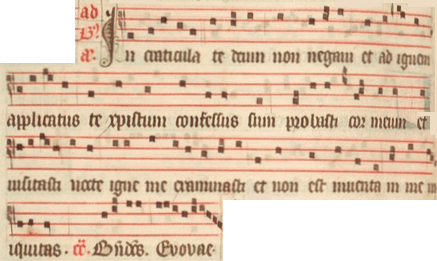 ad
In craticula te deum non negaui et ad ignem
applicatus te xpistum confessus sum probasti cor meum et
uisitasti nocte igne me examinasti et non est inuenta in me in
iquitas. Evovae.